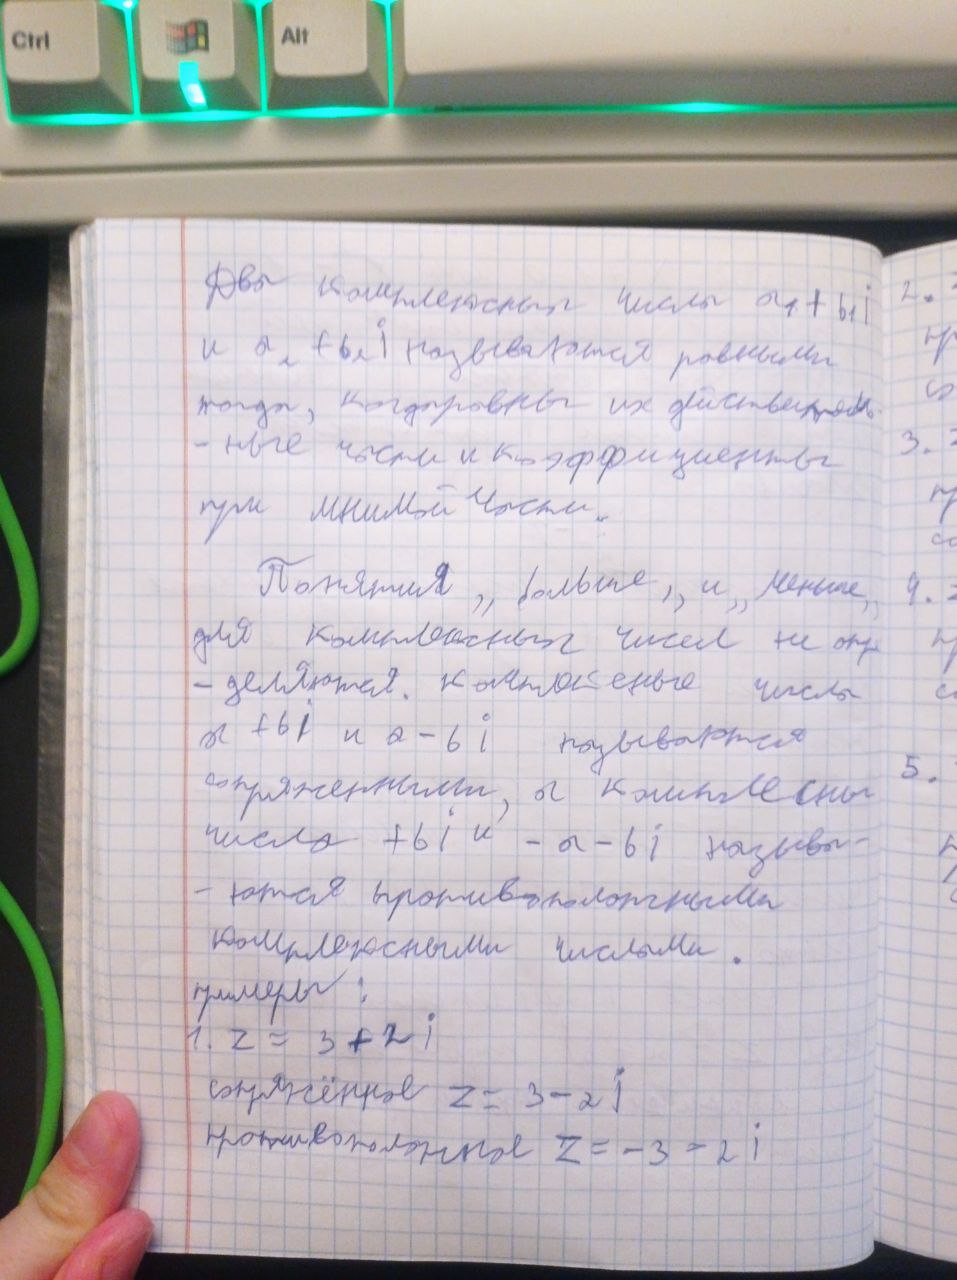 Ctrl
Alt
Два комплексных числа a₁+b₁i
и a₂+b₂i называются равными
тогда, когда равны их действитель
-ные части и коэффициенты
при мнимой части.
Понятия „больше„ и „меньше„
для комплексных чисел не опре
-деляются. комплексные числа
a+bi и a-bi называются
сопряженными, а комплексны
числа +bi и -a-bi называ-
-ются противоположными
комплексными числами.
примеры:
1. z = 3+2i
сопряжённое z = 3-2i
противоположное z = -3-2i
2.
3.
4.
5.